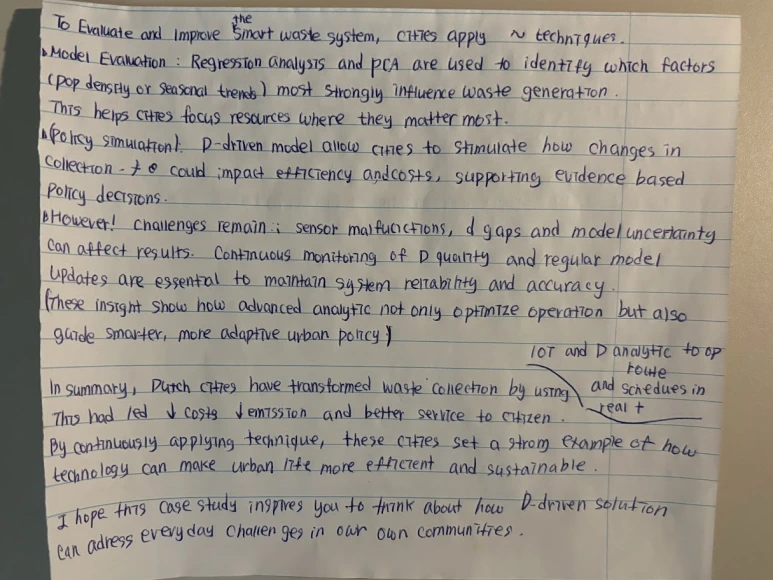 the
To Evaluate and Improve Smart waste system, cities apply ~ techniques.
Model Evaluation : Regression analysis and PCA are used to identify which factors
(pop density or seasonal trends) most strongly influence waste generation.
This helps cities focus resources where they matter most.
(Policy simulation). D-driven model allow cities to stimulate how changes in
collection - could impact efficiency and costs, supporting evidence based
Policy decisions.
However! challenges remain : sensor malfucictions, d gaps and model uncertainty
can affect results. Continuous monitoring of D quality and regular model
updates are essential to maintain system reliability and accuracy.
(These insight show how advanced analytic not only optimize operation but also
guide smarter, more adaptive urban policy)
IOT and D analytic to op
route
In summary, Dutch cities have transformed waste collection by using
and schedues in
This had led ↓ costs ↓ emission and better service to citizen.
real t
By continuously applying technique, these cities set a strom example of how
technology can make urban life more efficient and sustainable.
I hope this case study inspires you to think about how D-driven solution
can adress everyday challenges in our own communities.